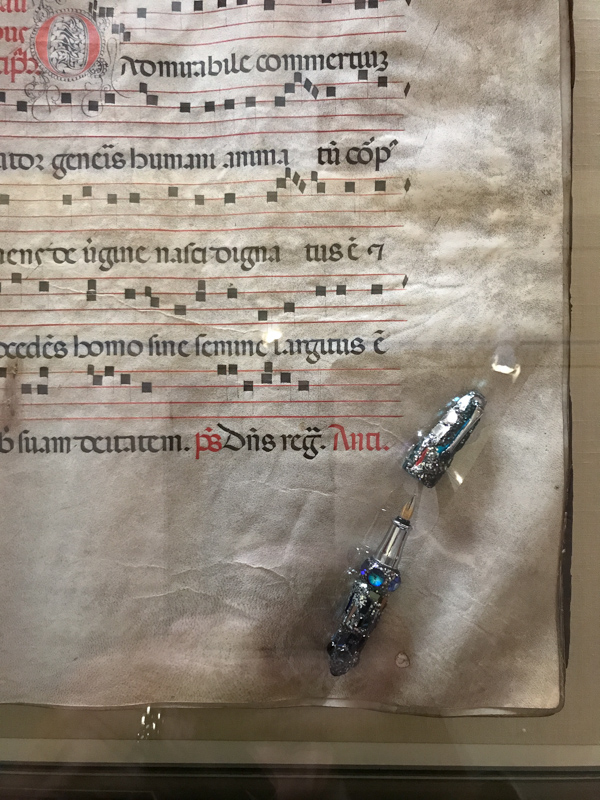 O Admirabile commertiuz
ator genr̃is humani anima tũ cõp̃
nens de ũgine nasci digna tus ẽ ⁊
ocedẽs homo sine semine largitus ẽ
b suam deitatem. ps̃ Dñs reg̃. Anti.